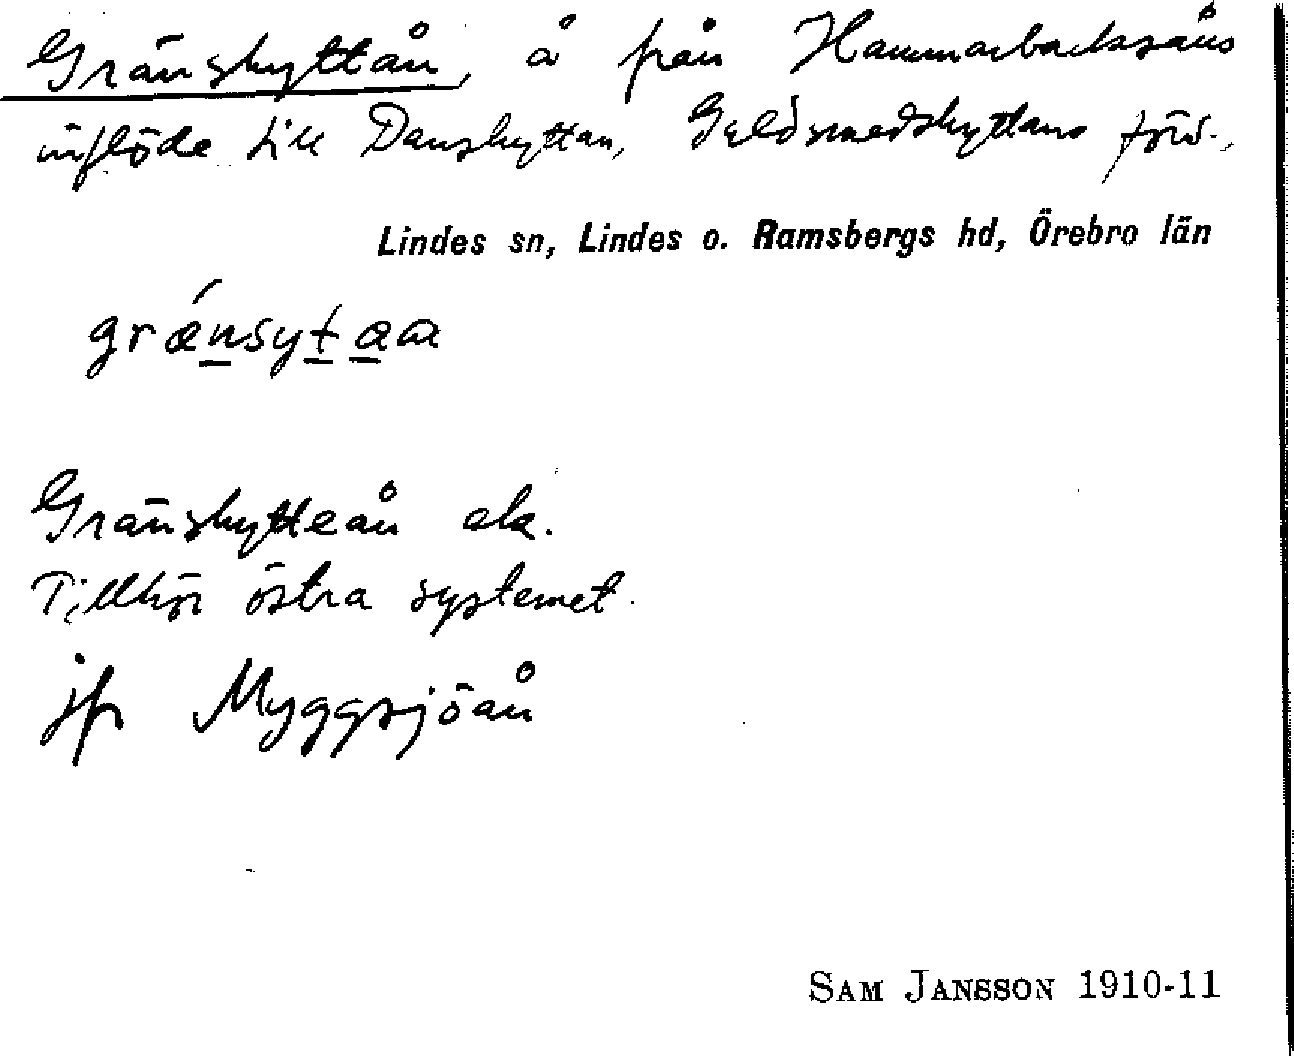 Gränshyttån, å från Hammarbacksåns
inflöde till Danshyttan, Guldsmedshyttans förs.,
Lindes sn, Lindes o. Ramsbergs hd, Örebro län
grǽnsytaa
Gränshytteån ek.
Tillhör östra systemet.
jfr Myggsjöån
SAM JANSSON 1910-11